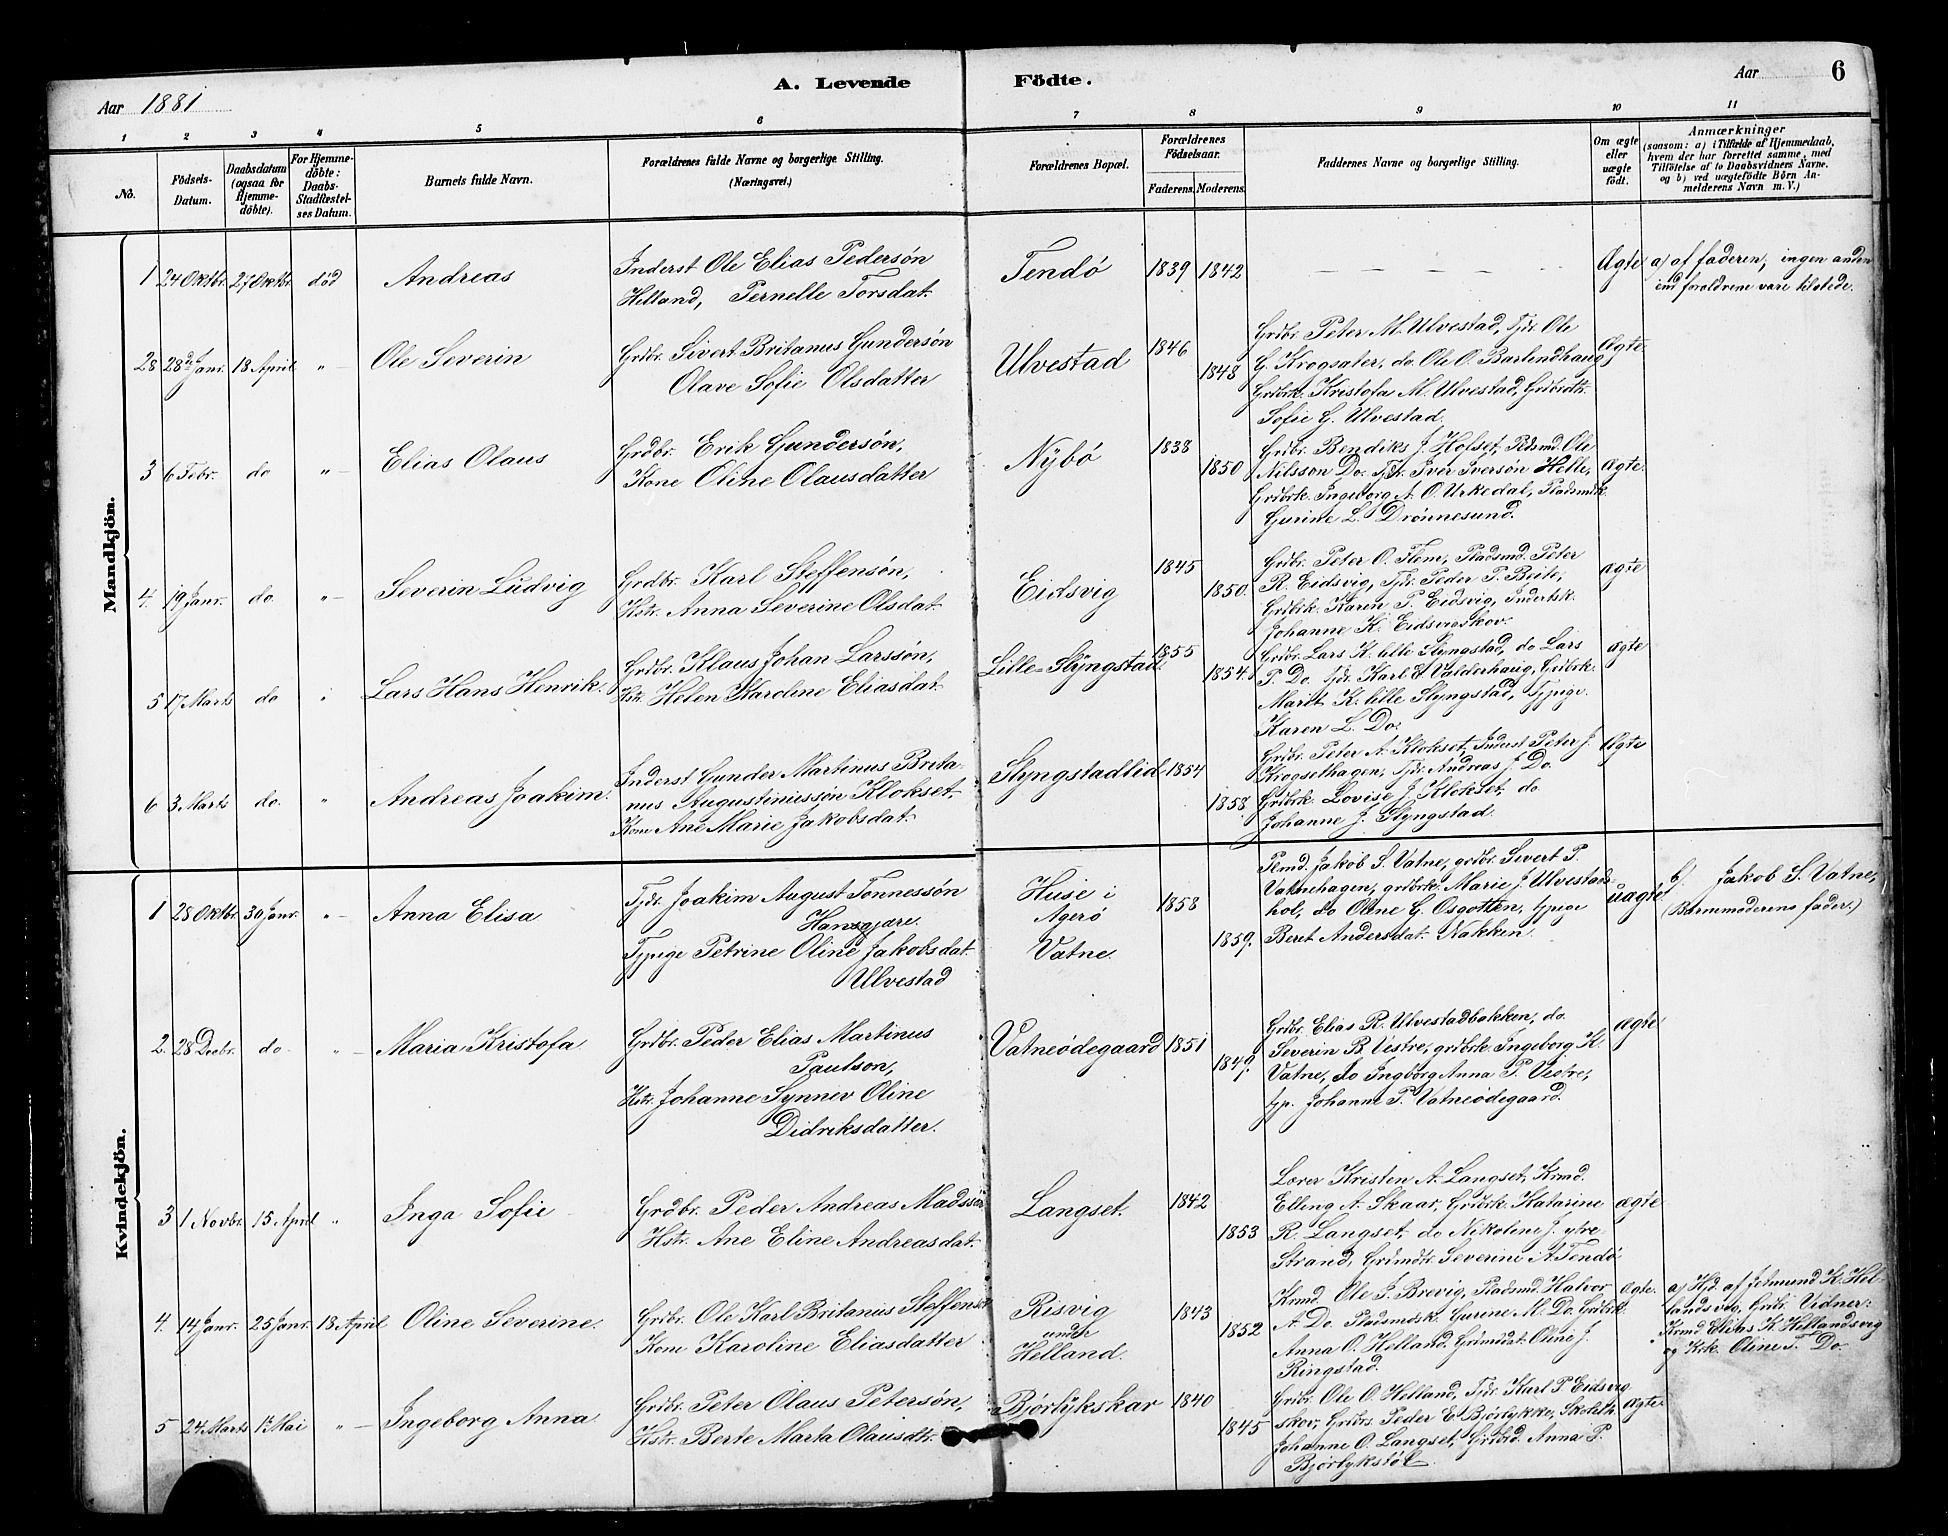 A. Levende Födte.
Aar 1881
Aar 6
1 2 3 4 5 6 7 8 9 10 11
No.
Födsels-Datum.
Daabsdatum (ogsaa for Hjemmedöbte).
For Hjemmedöbte: Daabs-Stadfæstelses Datum.
Barnets fulde Navn.
Forældrenes fulde Navne og borgerlige Stilling.
(Næringsvei.)
Forældrenes Bopæl.
Forældrenes Födselsaar.
Faderens. Moderens.
Faddernes Navne og borgerlige Stilling.
Om ægte eller uægte födt.
Anmærkninger
(saasom: a) i Tilfælde af Hjemmedaab,
hvem der har forrettet samme, med
Tilföielse af to Daabsvidners Navne.
og b) ved uægtefödte Börn Anmelderens Navn m. V.)
Mandkjön.
1 24 Oktbr. 27 Oktbr. död Andreas
Inderst Ole Elias Pedersøn
Helland, Pernelle Torsdat.
Tendö 1839 1842
Ægte
a) af faderen, ingen anden
end foraldrene vare tilstede.
28 28de Janr. 18 April " Ole Severin
Grdbr. Sivert Britanus Gundersøn
Olave Sofie Olsdatter
Ulvestad 1846 1848
Grdbr. Peter M. Ulvestad, Tjdr. Ole
G. Krogsater, do. Ole O. Barlindhaug
Grdbrk. Kristofa M. Ulvestad, Grdbrdtr.
Sofie G. Ulvestad.
Ægte
3 6 Febr. do " Elias Olaus
Grdbr. Erik Gundersøn,
Kone Oline Olausdatter
Nybö 1838 1850
Grdbr. Bendiks J. Hofset, Pladsmd. Ole
Nilsson Do. Tjdr. Iver Iversøn Helle,
Grdbrk. Ingeborg A. O. Urkedal, Pladsmdk.
Gurine L. Drönnesund.
ægte.
4. 19 Janr. do. " Severin Ludvig
Grdbr. Karl Steffensøn,
Hstr. Anna Severine Olsdat.
Eidsvig 1845 1850.
Grdbr. Peter O. Flem, Pladsmd. Peter
R. Eidsvig, Tjdr. Peder P. Beite,
Grdbrk. Karen P. Eidsvig, Inderstk.
Johanne K. Eidsvigskov.
ægte
5 17 Marts do " Lars Hans Henrik.
Grdbr. Klaus Johan Larssøn,
Hstr. Helen Karoline Eliasdat.
Lille-Slyngstad 1855 1854.
Grdbr. Lars K. lille Slyngstad, do Lars
P. Do. Tjdr. Karl A Valderhaug, Grdbrk.
Marit K. lille Slyngstad, Tjpige
Karen L. Do.
ægte
6 3 Marts do. " Andreas Joakim.
Inderst Gunder Martinus Brita-
nus Augustinussøn Klokset,
Kone Ane Marie Jakobsdat.
Slyngstadlid 1854 1858.
Grdbr. Peter A. Klokset, Inderst Peter J.
Krogsethagen, Tjdr. Andreas J. Do.
Grdbrk. Lovise J. Klokset, do
Johanne J. Slyngstad.
Ægte
Kvindekjön.
1 28 Oktbr. 30 Janr. " Anna Elisa
Tjdr. Joakim August Tonnessøn
Hansgjære.
Tjpige Petrine Oline Jakobsdat.
Ulvestad
Huse i
Agerö
Vatne.
1858 1859.
Pmd. Jakob S. Vatne, grdbr. Sivert P.
Vatnehagen, grdbrk. Marie J. Ulvestad-
hol, do Oline G. Osgotten, tjpige
Beret Andersdat. Nakken.
uægte
b) Jakob S. Vatne,
(Barnemoderens fader.)
2. 28 Decbr. do. " Maria Kristofa
Grdbr. Peder Elias Martinus
Paulson,
Hstr. Johanne Synnev Oline
Didriksdatter.
Vatneödegaard 1851 1849.
Grdbr. Elias R. Ulvestadbakken, do.
Severin B. Vestre, grdbrk. Ingeborg K.
Vatne, do Ingborg Anna P. Vestre,
tjp. Johanne P. Vatneödegaard.
ægte
3 1 Novbr. 15 April " Inga Sofie
Grdbr. Peder Andreas Madssøn
Hstr. Ane Eline Andreasdat.
Langset. 1842 1853
Lærer Kristen A. Langset, Krmd.
Elling A. Skaar, Grdbrk. Katarine
R. Langset, do Nikoline J. ytre
Strand, Grdmdtr. Severine A. Tendö
ægte
4. 14 Janr. 25 Janr. 18 April Oline Severine.
Grdbr. Ole Karl Britanus Steffensøn
Kone Karoline Eliasdatter
Risvig
under
Helland.
1843 1852
Krmd. Ole J. Brevig, Pladsmd. Halvor
A. Do. Pladsmdsk. Gurine M. Do. Grdbrk.
Anna O. Helland. Grdmddat. Oline J.
Ringstad.
Ægte.
a) Hjd. af Jetmund K. Hel-
landsvig, Grdbr. Vidner:
Krmd Elias K. Hellandsvig
og Krk. Oline T. Do.
5 24 Marts 1ste Mai " Ingeborg Anna
Grdbr. Peter Olaus Petersøn,
Hstr. Berte Marta Olausdtr.
Bjørlykskar 1840 1845
Grdbr. Ole O. Helland, Tjdr. Karl P. Eidsvig
skov, Grdbrs. Peder E. Bjørlykke, Skolelh
Johanne O. Langset, Grdbrd. Anna P.
Bjørlykstøl.
Ægte.